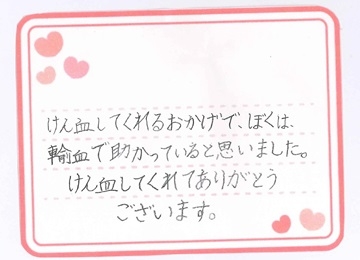 けん血してくれるおかげで、ぼくは、
輸血で助かっていると思いました。
けん血してくれてありがとう
ございます。